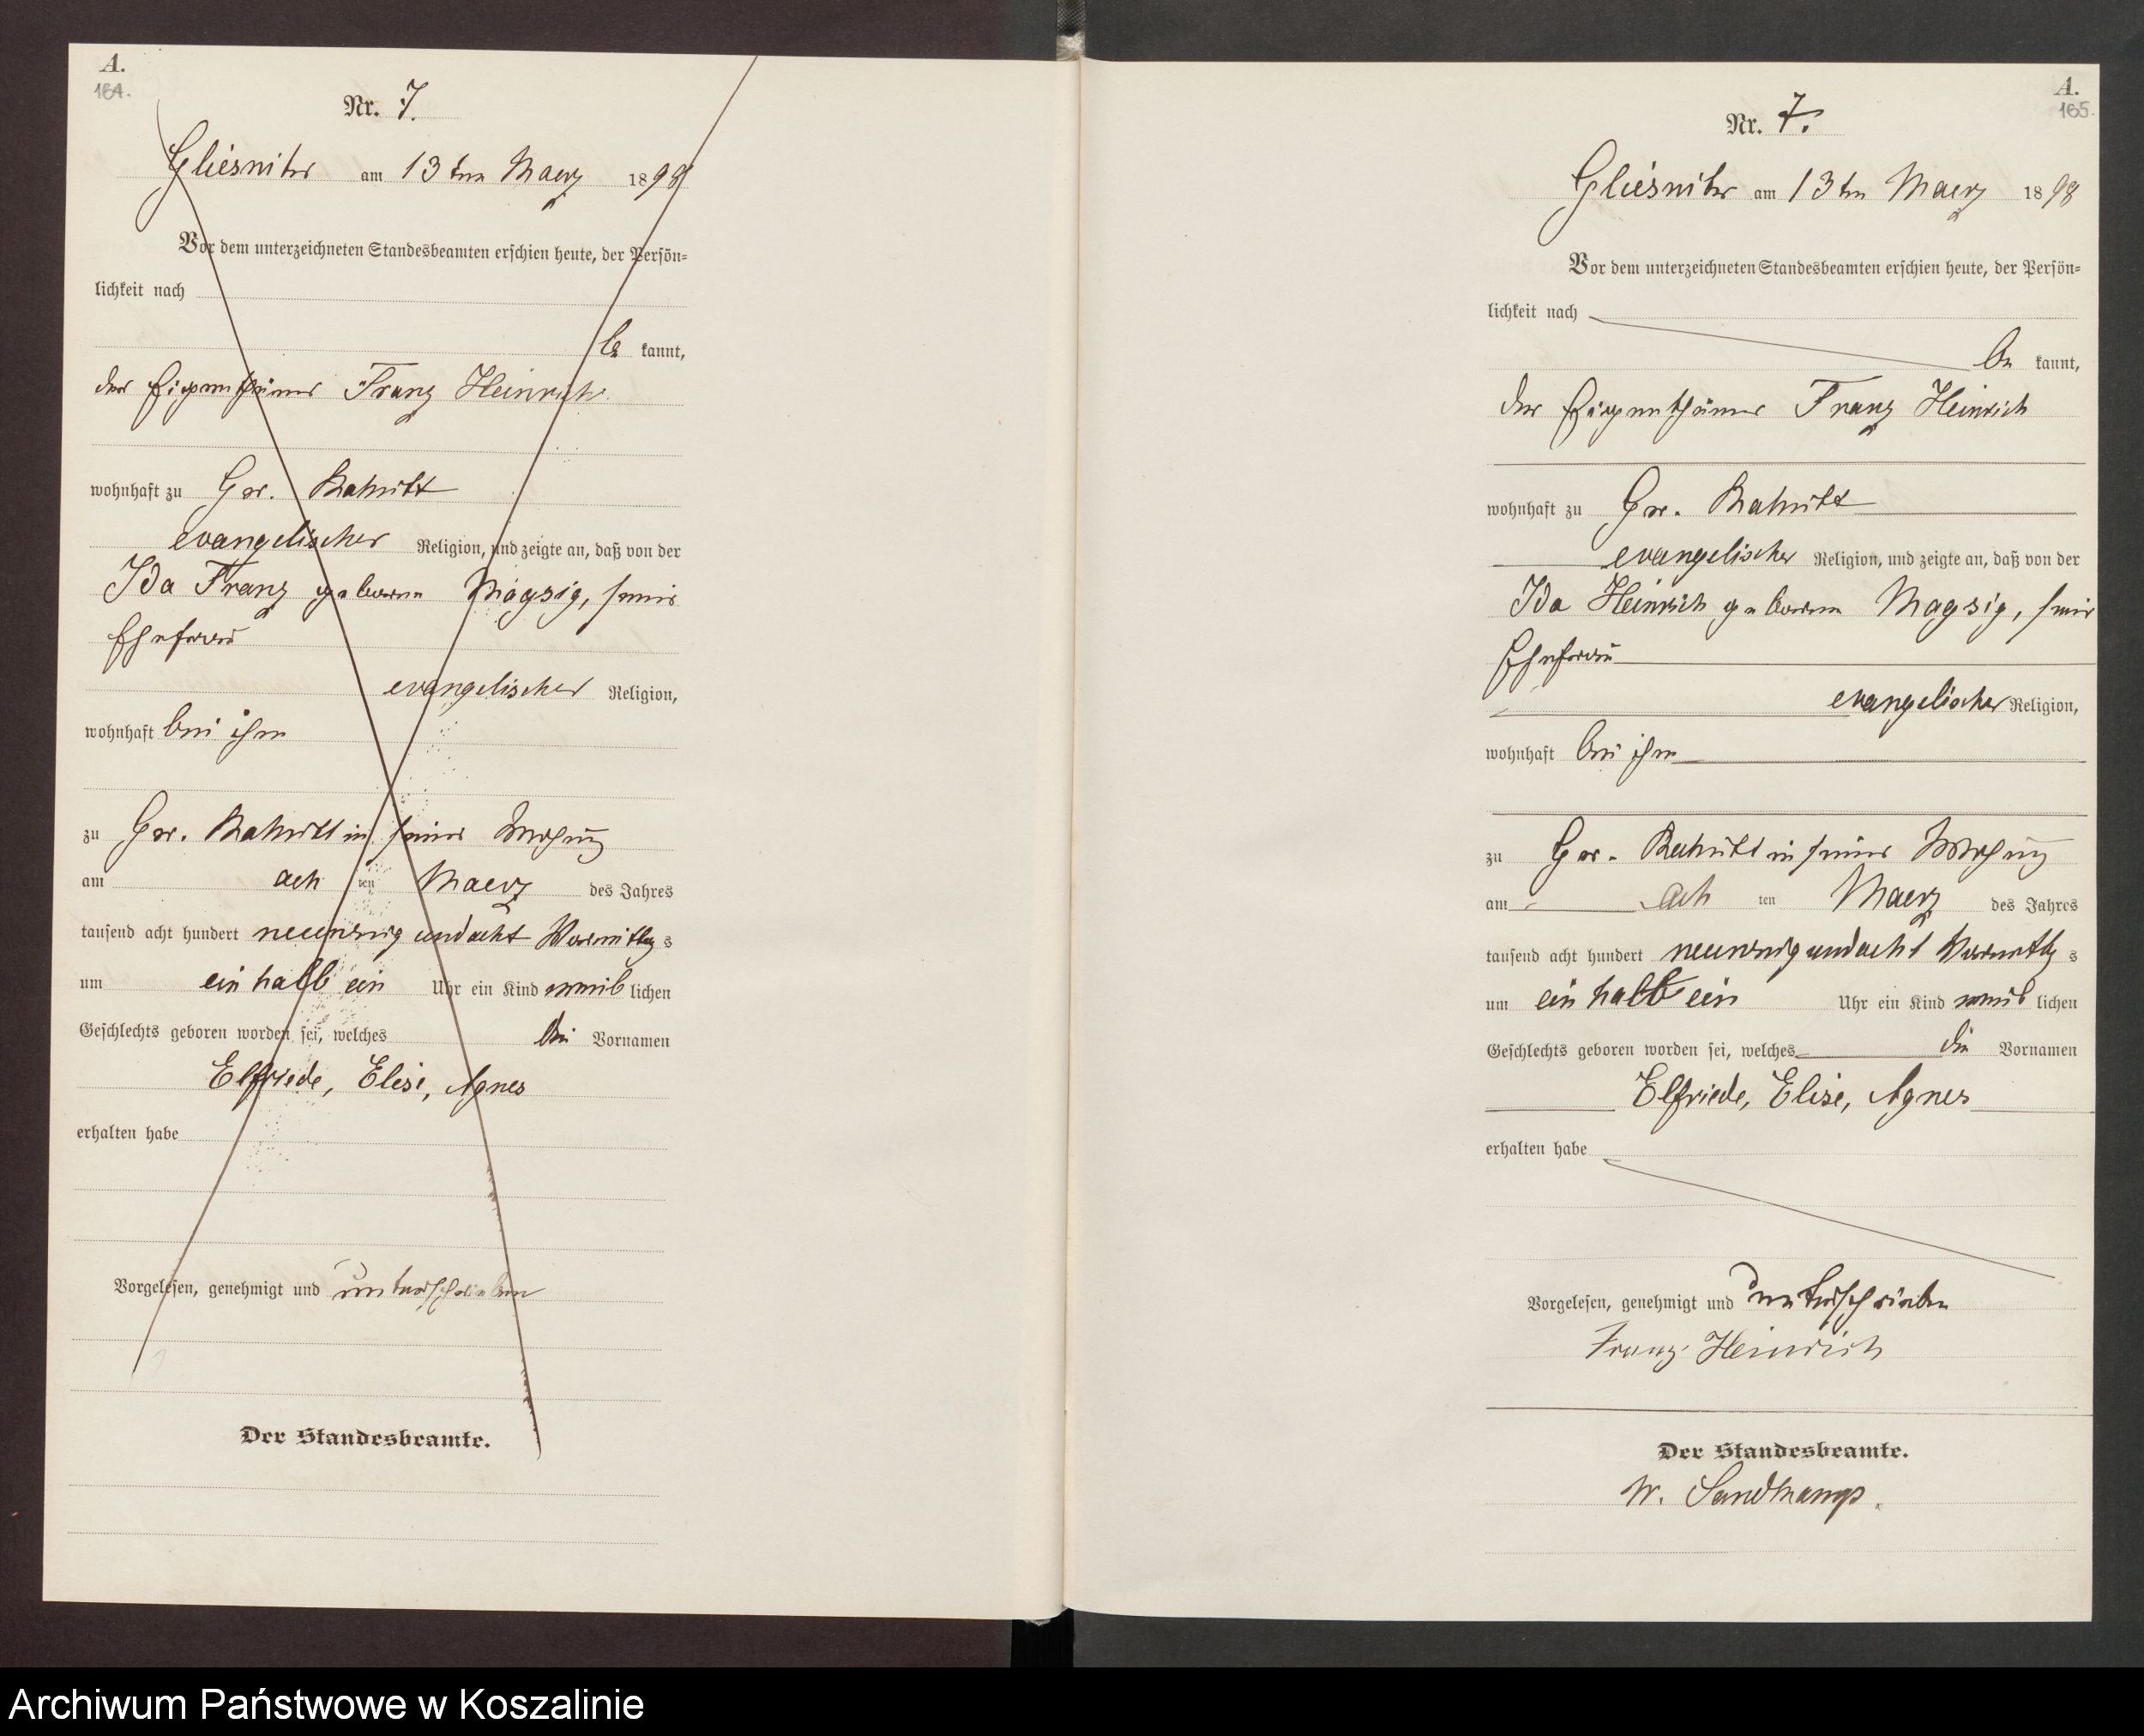 A.
164.
Nr. 7.
Gliesnitz am 13ten Maerz 1898
Vor dem unterzeichneten Standesbeamten erschien heute, der Persön-
lichkeit nach
be kannt,
der Eigenthümer Franz Heinrich
wohnhaft zu Gr.
evangelischer Religion, und zeigte an, daß von der
Ida Franz geborene Magsig, seiner
Ehefrau
evangelischer Religion,
wohnhaft bei ihm
zu Gr. in seiner Wohnung
am ach ten Maerz des Jahres
tausend acht hundert neunzig und acht Vormittag s
um ein halb ein Uhr ein Kind weib lichen
Geschlechts geboren worden sei, welches die Vornamen
Elfriede, Elise, Agnes
erhalten habe
Vorgelesen, genehmigt und unterschrieben
Der Standesbeamte.
A.
165.
Nr. 7.
Gliesnitz am 13ten Maerz 1898
Vor dem unterzeichneten Standesbeamten erschien heute, der Persön-
lichkeit nach
be kannt,
der Eigenthümer Franz Heinrich
wohnhaft zu Gr.
evangelischer Religion, und zeigte an, daß von der
Ida Heinrich geborene Magsig, seiner
Ehefrau
evangelischer Religion,
wohnhaft bei ihm
zu Gr. in seiner Wohnung
am ach ten Maerz des Jahres
tausend acht hundert neunzig und acht Vormittag s
um ein halb ein Uhr ein Kind weib lichen
Geschlechts geboren worden sei, welches die Vornamen
Elfriede, Elise, Agnes
erhalten habe
Vorgelesen, genehmigt und unterschrieben
Franz Heinrich
Der Standesbeamte.
W. Sandkamp.
Archiwum Państwowe w Koszalinie